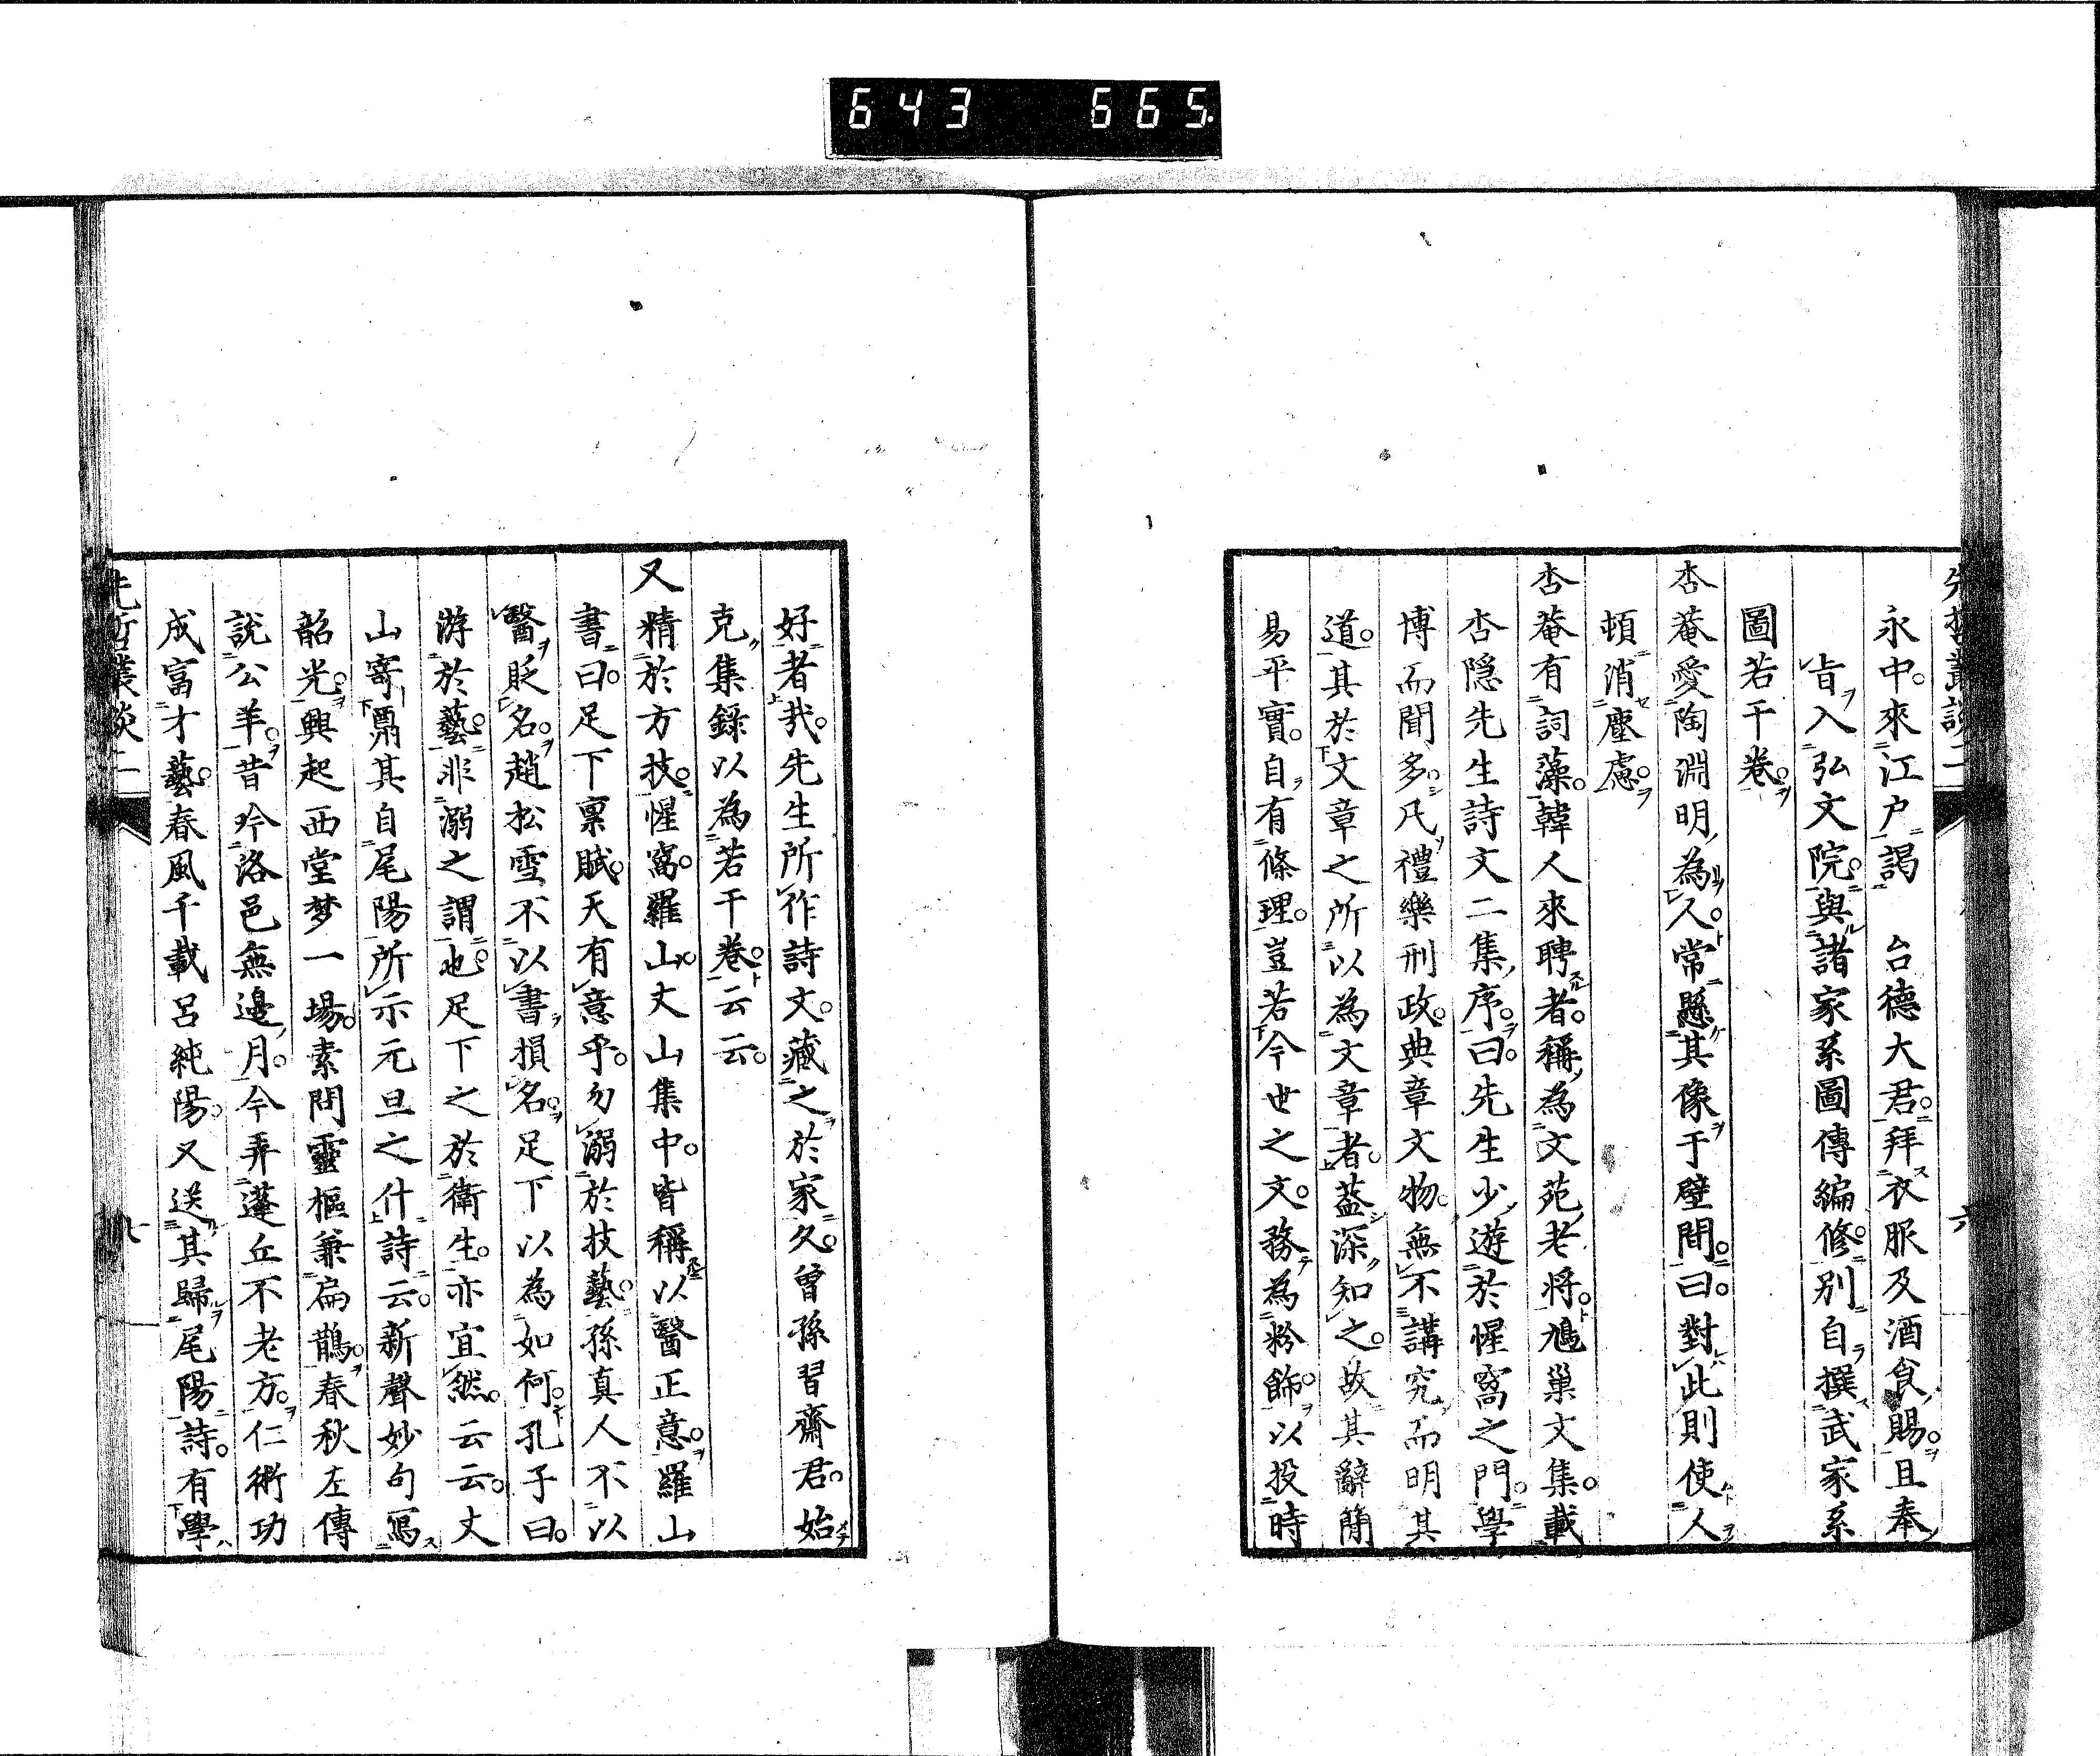 643 665
先哲叢談二
六
永中。來江戶謁 台德大君。拜衣服及酒食賜。且奉
旨入弘文院。與諸家系圖傳編修。別自撰武家系
圖若干卷。
杏菴愛陶淵明為人。常懸其像于壁間。曰。對此則使人
頓消塵慮。
杏菴有詞藻。韓人來聘者。稱為文苑老將。鳩巢文集。載
杏隱先生詩文二集序。曰。先生少遊於惺窩之門。學
博而聞多。凡禮樂刑政。典章文物。無不講究。而明其
道。其於文章之所以為文章者。蓋深知之。故其辭簡
易平實。自有條理。豈若今世之文。務為粉飾。以投時
好者哉。先生所作詩文。藏之於家久。曾孫習齋君。始
克集錄以為若干卷。云云。
又精於方技。惺窩。羅山。丈山集中。皆稱以醫正意。羅山
書曰。足下稟賦。天有意乎。勿溺於技藝。孫真人不以
醫貶名。趙松雪不以書損名。足下以為如何。孔子曰。
游於藝。非溺之謂也。足下之於衛生。亦宜然。云云。丈
山寄鼎其自尾陽所示元旦之什詩云。新聲妙句寫
韶光。興起西堂梦一場。素問靈樞兼扁鵲。春秋左傳
說公羊。昔吟洛邑無邊月。今弄蓬丘不老方。仁術功
成富才藝。春風千載呂純陽。又送其歸尾陽詩。有學
先哲叢談二